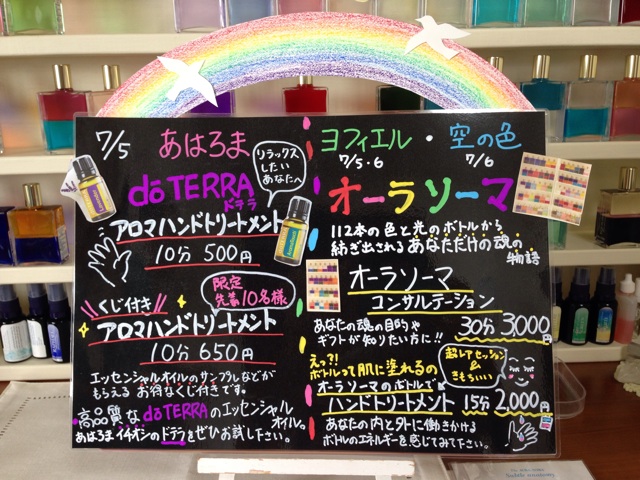 7/5 あはろま
リラックス
したい
あなたへ
dōTERRA
ドテラ
アロマハンドトリートメント
10分 500円
限定
先着10名様
くじ付き
アロマハンドトリートメント
10分 650円
エッセンシャルオイルのサンプルなどが
もらえる お得なくじ付きです。
高品質なdōTERRAのエッセンシャル
オイル。
あはろまイチオシのドテラをぜひお試し下さい。
ヨフィエル・空の色
7/5・6
7/6
オーラソーマ
112本の色と光のボトルから
紡ぎ出されるあなただけの魂の
物語
オーラソーマ
コンサルテーション
あなたの魂の目的や
ギフトが知りたい方に!!
30分 3,000円
えっ?!
ボトルって肌に塗れるの
オーラソーマのボトルで
ハンドトリートメント 15分 2,000円
超レアセッション
&
きもちいい
あなたの内と外に働きかける
ボトルのエネルギーを感じてみて下さい。